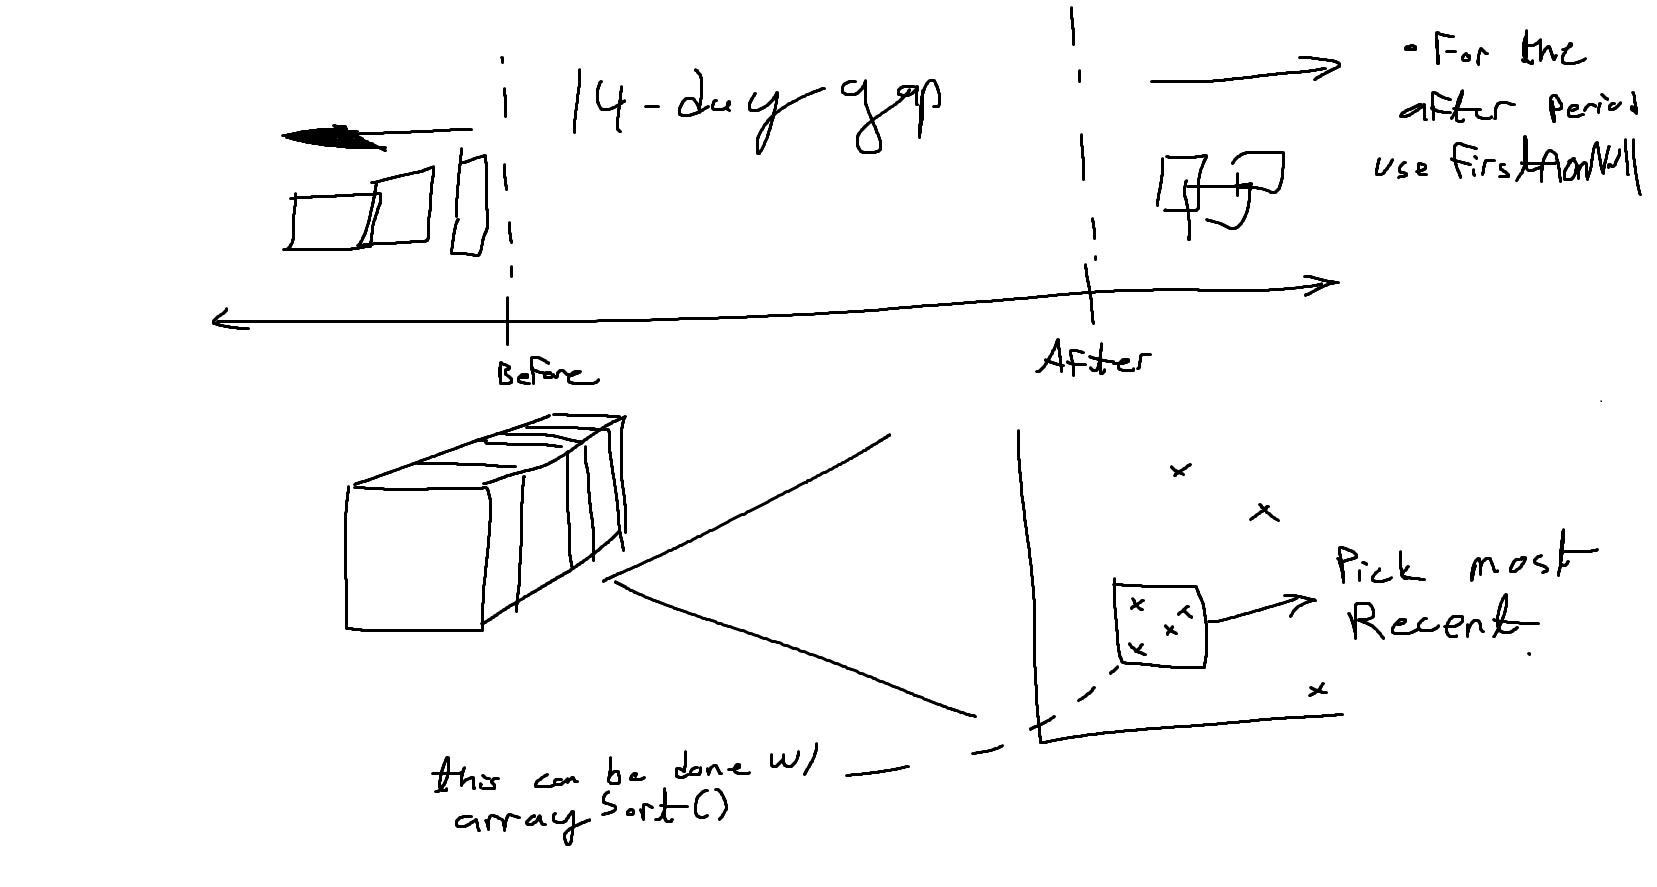 14-day gap
• For the
after period
use firstNonNull
Before
After
Pick most
Recent.
this can be done w/
arraySort()